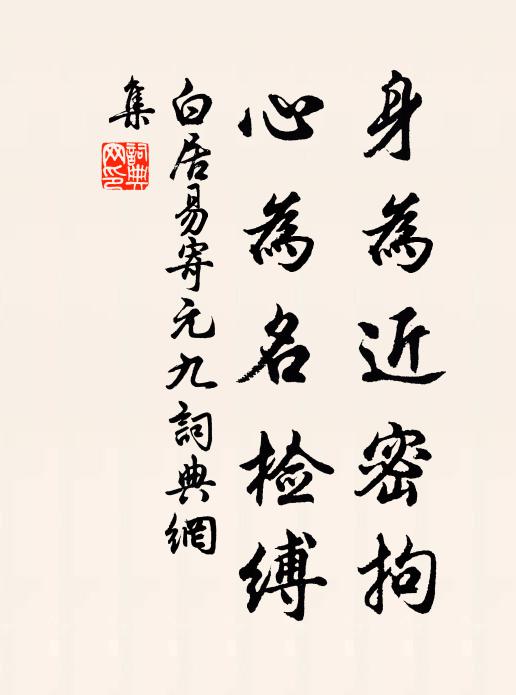 身為近密拘
心為名檢縛
白居易寄元九詞典網
集
詞典
网印